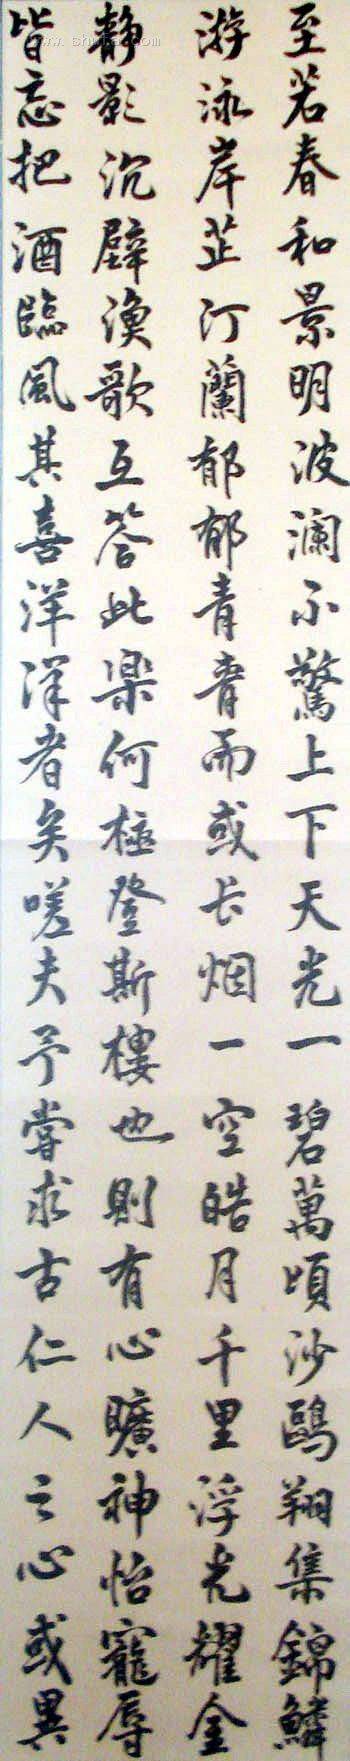 至若春和景明波澜不驚上下天光一碧萬頃沙鷗翔集錦鱗
游泳岸芷汀蘭郁郁青青而或长烟一空皓月千里浮光耀金
静影沉壁漁歌互答此楽何極登斯樓也則有心曠神怡寵辱
皆忘把酒臨風其喜洋洋者矣嗟夫予嘗求古仁人之心或異